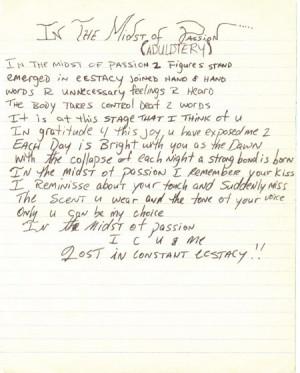 In The Midst of Passion.....
(ADULDTERY)
IN THE MIDST OF PASSION 2 Figures STAND
emerged in ecstacy joined HAND & HAND
words R unnecessary feelings R Heard
The Body TAKES CONTROL Deaf 2 words
It is at this STAGE THAT I Think of u
In gratitude 4 this joy u have exposed me 2
EACH DAY is Bright with you as the DAWN
with the collapse of each night a strong bond is born
In the midst of passion I remember your Kiss
I Reminisse about your touch and Suddenly miss
The SCENT u wear and the tone of your voice
Only u can be my choice
In the midst of passion
I C U & Me
LOST in CONSTANT ECSTACY!!